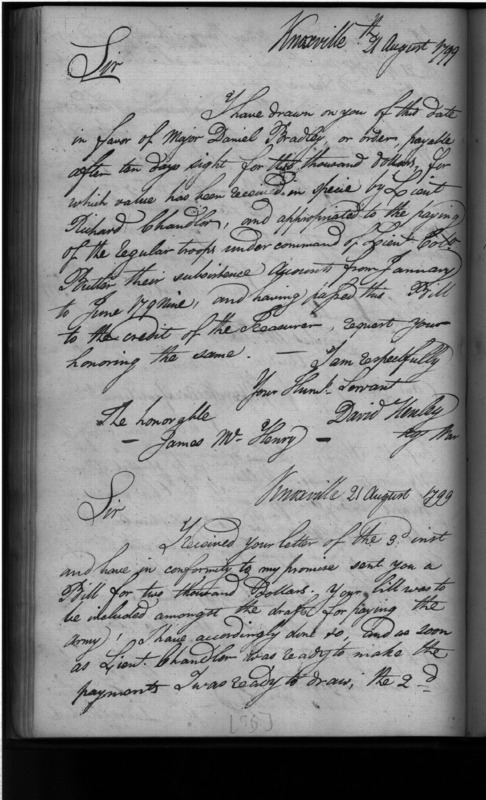 Knoxville 21th August 1799
Sir
I have drawn on you of this date
in favor of Major Daniel Bradley or order payable
after ten days sight for thousand dollars, for
which value has been received in specie by Lieut
Richard Chandler, and appropriated to the paying
of the regular troops under command of Lieut Colo
Butler their subsistence accounts from January
to June 179nine, and having passed this Bill
to the credit of the Treasurer, request your
honoring the same. — I am respectfully
Your Humb. Servant
The honorable David Henley
— James Mc Henry — Agt War
Knoxville 21 August 1799
Sir
Received your letter of the 3d inst
and have in conformity to my promise sent you a
Bill for two thousand Dollars. Your bill was to
be included amongst the drafts for paying the
army; I have accordingly done so, and as soon
as Lieut. Chandler was ready to make the
payments I was ready to draw; the 2d
[ ]